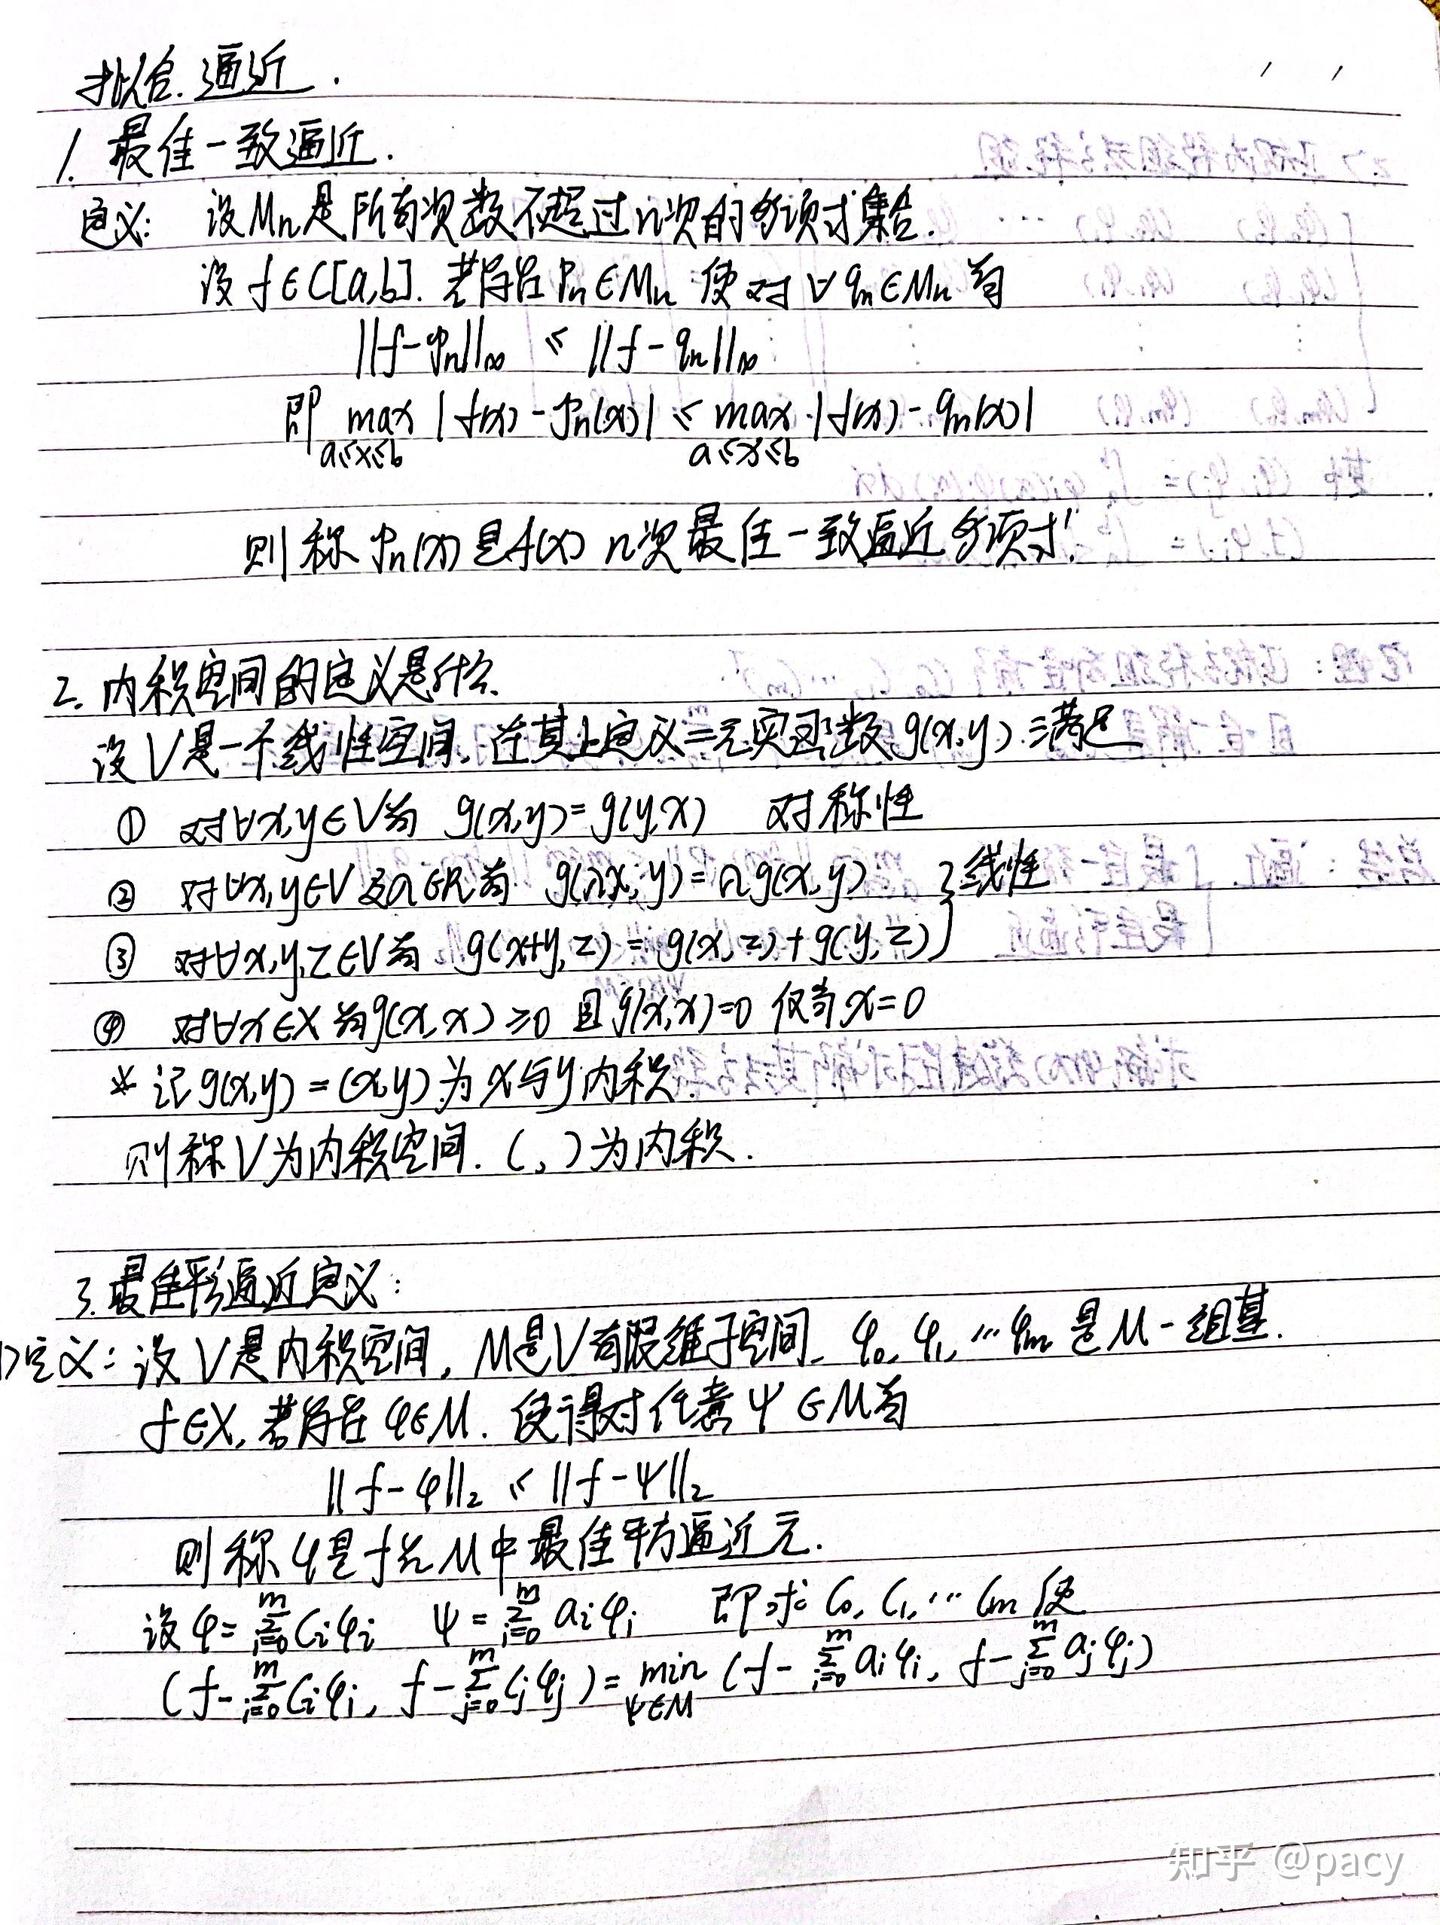 拟合.逼近.
1.最佳一致逼近.
定义: 设Mn是所有次数不超过n次的多项式集合.
设f∈C[a,b].若存在Pn∈Mn 使对∀qn∈Mn有
||f-pn||∞ ≤ ||f-qn||∞
即 max a≤x≤b |f(x)-pn(x)| ≤ max a≤x≤b |f(x)-qn(x)|
则称Pn(x)是f(x) n次最佳一致逼近多项式.
2.内积空间的定义是什么.
设V是一个线性空间.在其上定义二元实函数g(x,y).满足
① 对∀x,y∈V有 g(x,y)=g(y,x) 对称性
② 对∀x,y∈V及λ∈R有 g(λx,y)=λg(x,y) }线性
③ 对∀x,y,z∈V有 g(x+y,z)=g(x,z)+g(y,z)
④ 对∀x∈X有g(x,x)≥0 且g(x,x)=0 仅当x=0
* 记g(x,y)=(x,y)为x与y内积
则称V为内积空间.( , )为内积.
3.最佳平方逼近定义:
1>定义:设V是内积空间, M是V有限维子空间, φ0, φ1, …φm 是M一组基.
f∈X,若存在φ∈M.使得对任意ψ∈M有
||f-φ||2 ≤ ||f-ψ||2
则称φ是f在M中最佳平方逼近元.
设φ=∑(i=0→m)Ciφi ψ=∑(i=0→m)aiφi 即求C0, C1, …Cm使
(f-∑(i=0→m)Ciφi, f-∑(j=0→m)Cjφj)=min ψ∈M (f-∑(i=0→m)aiφi, f-∑(j=0→m)ajφj)
知乎 @pacy